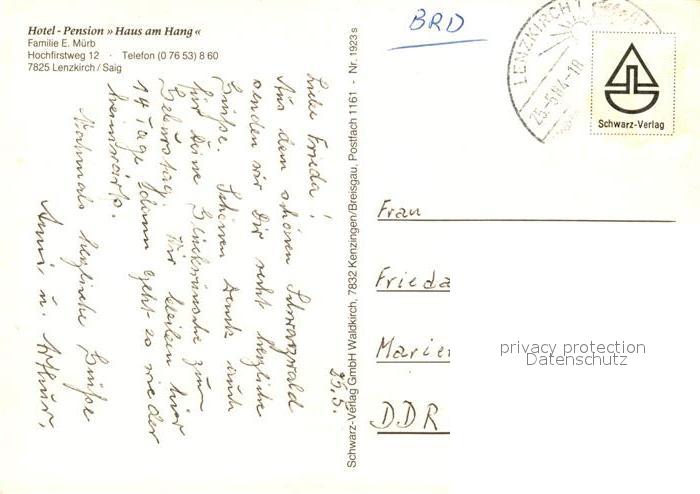 Hotel - Pension » Haus am Hang «
Familie E. Mürb
Hochfirstweg 12 · Telefon (0 76 53) 8 60
7825 Lenzkirch / Saig
25.5.
Liebe Frieda!
Aus dem schönen Schwarzwald
senden wir Dir recht herzliche
Grüße. Schönen Dank auch
für Deine Glückwünsche zum
Geburtstag. Wir bleiben hier
14 Tage dann geht es wieder
heimwärts.
Nochmals herzliche Grüße
Anni u. Arthur.
Schwarz-Verlag GmbH Waldkirch, 7832 Kenzingen/Breisgau, Postfach 1161 - Nr. 1923 s
BRD
LENZKIRCH 1
25.-5.84-18
Schwarz-Verlag
Frau
Frieda
Marie
DDR
privacy protection
Datenschutz